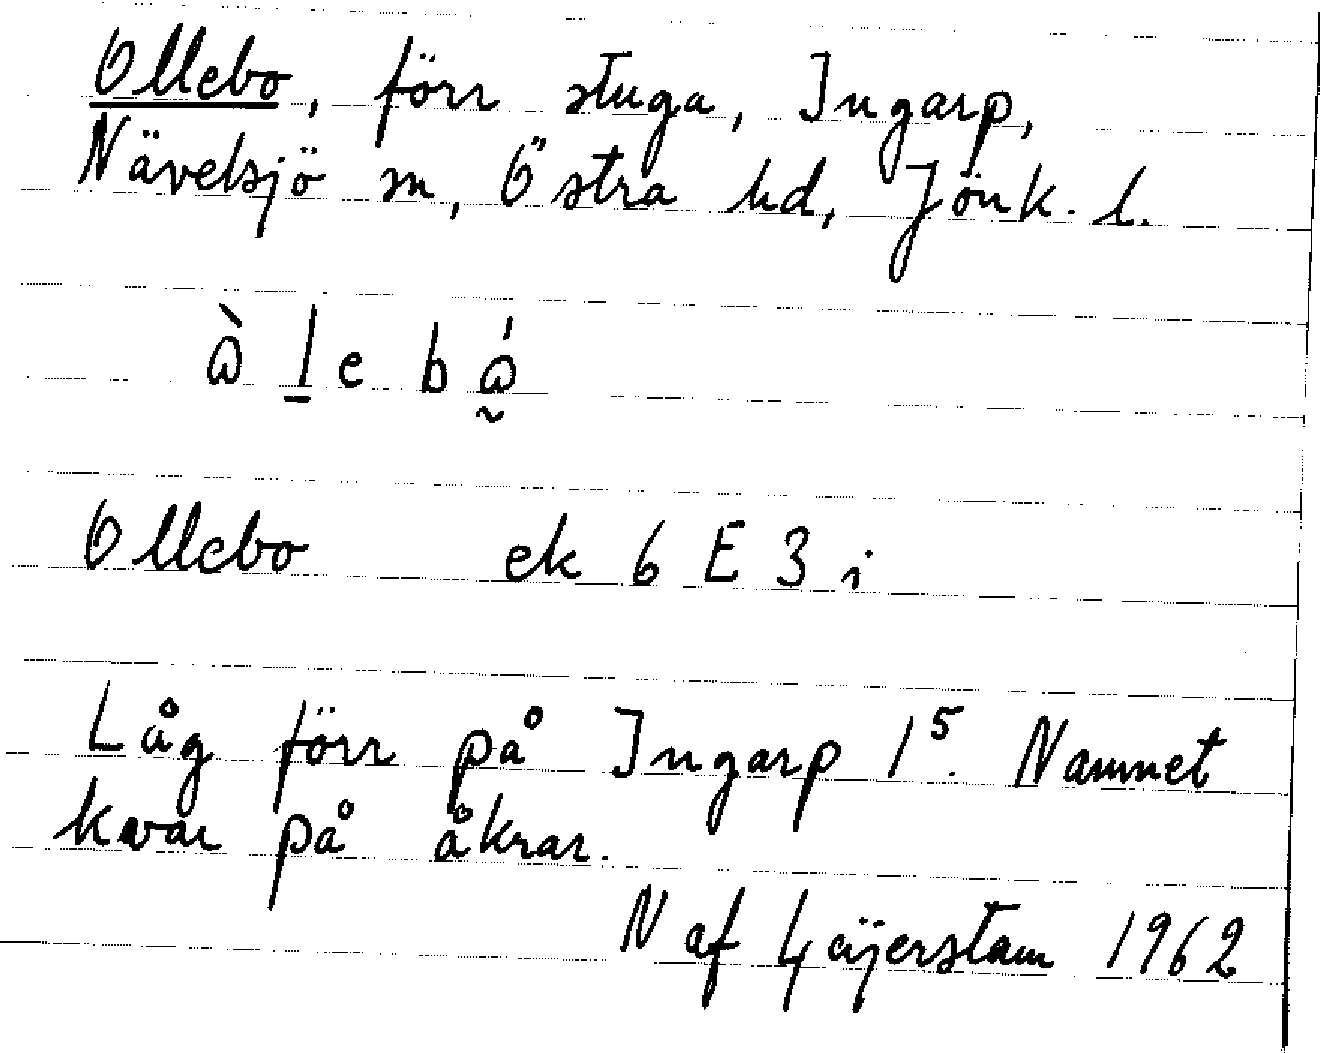 Ollebo, förr stuga, Ingarp,
Nävelsjö sn, Östra hd, Jönk. l.
Ollebo ek 6 E 3 i
Låg förr på Ingarp 1⁵. Namnet
kvar på åkrar.
N af Geijerstam 1962